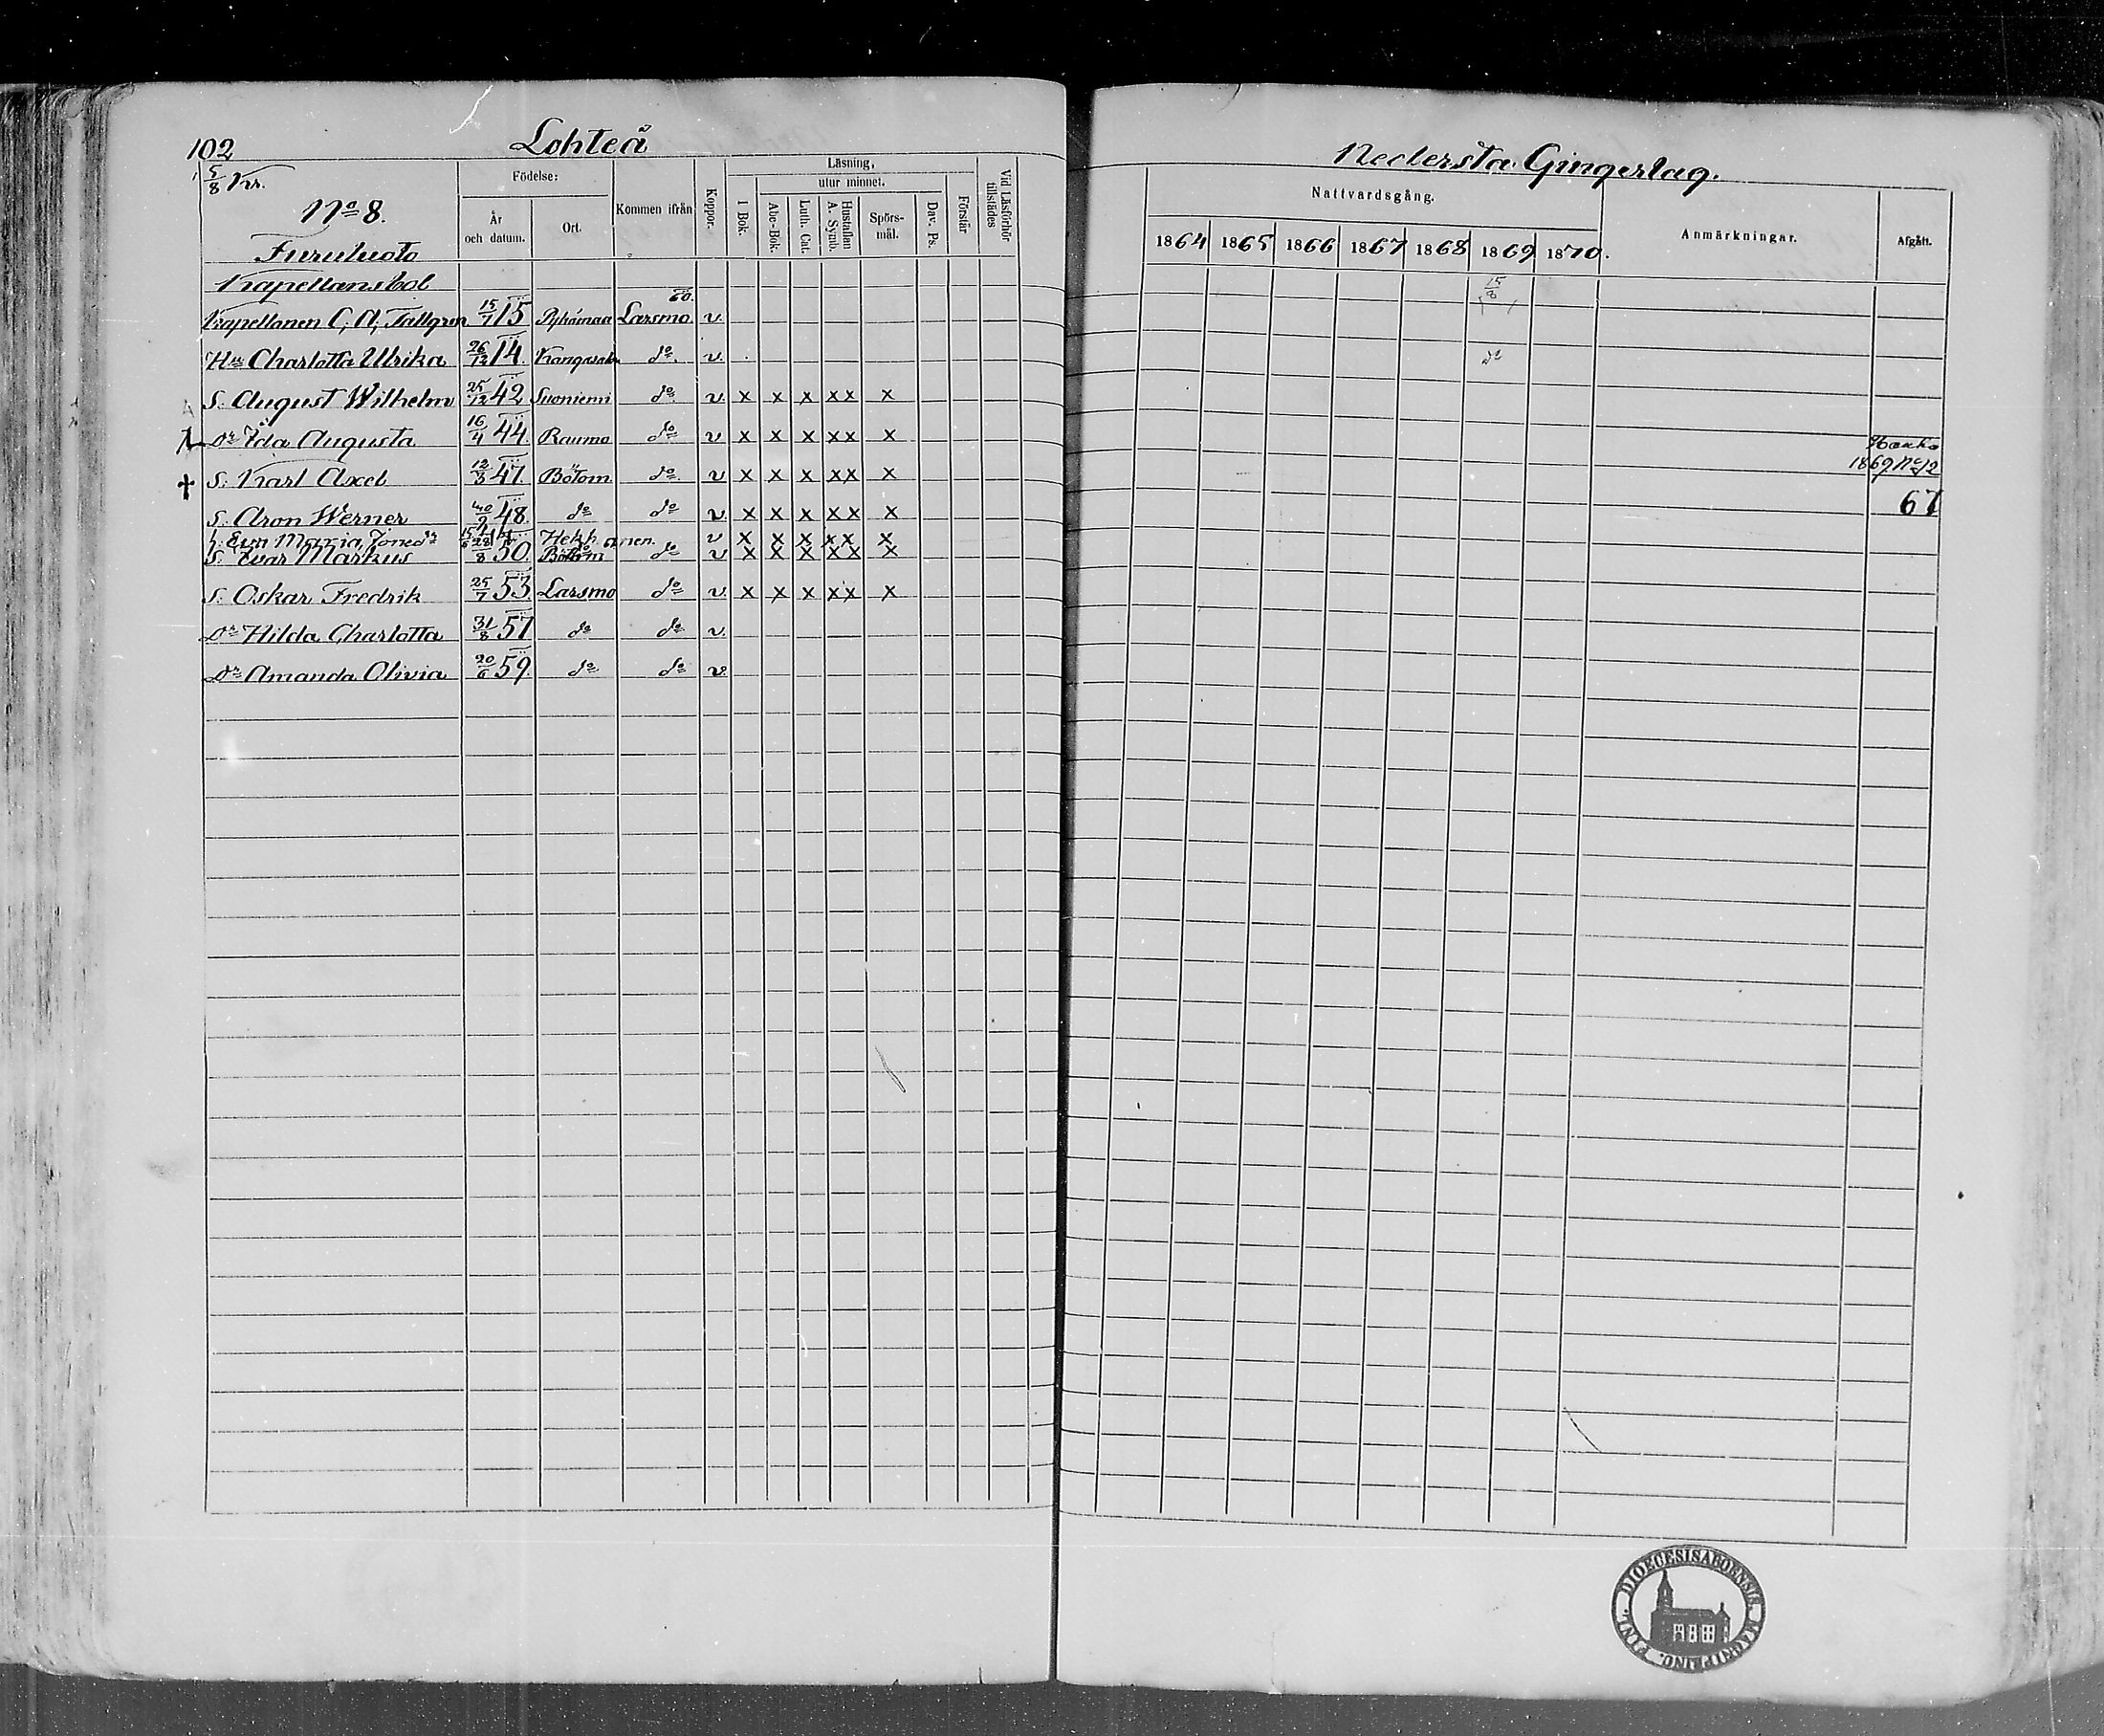 102 Lohteå
5/8 Kr.
No 8.
Furuluoto
Kapellansbol
Födelse:
År och datum.
Ort.
Kommen ifrån
Koppor.
Läsning,
utur minnet.
I Bok.
Abc-Bok.
Luth. Cat.
Hustaflan A. Symb.
Spörs-mål.
Dav. Ps.
Förstår
Vid Läsförhör tillstädes
60.
Kapellanen C. A. Tallgren 15/7 15 Pyhämaa Larsmo v
Hu Charlotta Ulrika 26/12 14. Kangasala do. v
S. August Wilhelm 25/12 42 Suoniemi do. v x x x xx x
Dr Ida Augusta 16/4 44. Raumo do v x x x xx x
† S. Karl Axel 12/3 47. Bötom do. v x x x xx x
S. Aron Werner 48. do do v x x x xx x
h. Eva Maria Jonedr v x x x xx x
S. Evar Markus 28/8 50. Bötom do v x x x xx x
S. Oskar Fredrik 25/7 53. Larsmo do v x x x xx x
Dr Hilda Charlotta 31/8 57 do do v.
Dr Amanda Olivia 20/6 59. do do v.
Nedersta Gingerlag.
Nattvardsgång.
1864 1865 1866 1867 1868 1869 1870.
Anmärkningar.
Afgått.
15/8
do
1869 No 12
67
DIOECESIS ABOENSIS MAGNI PRINC. FINL.